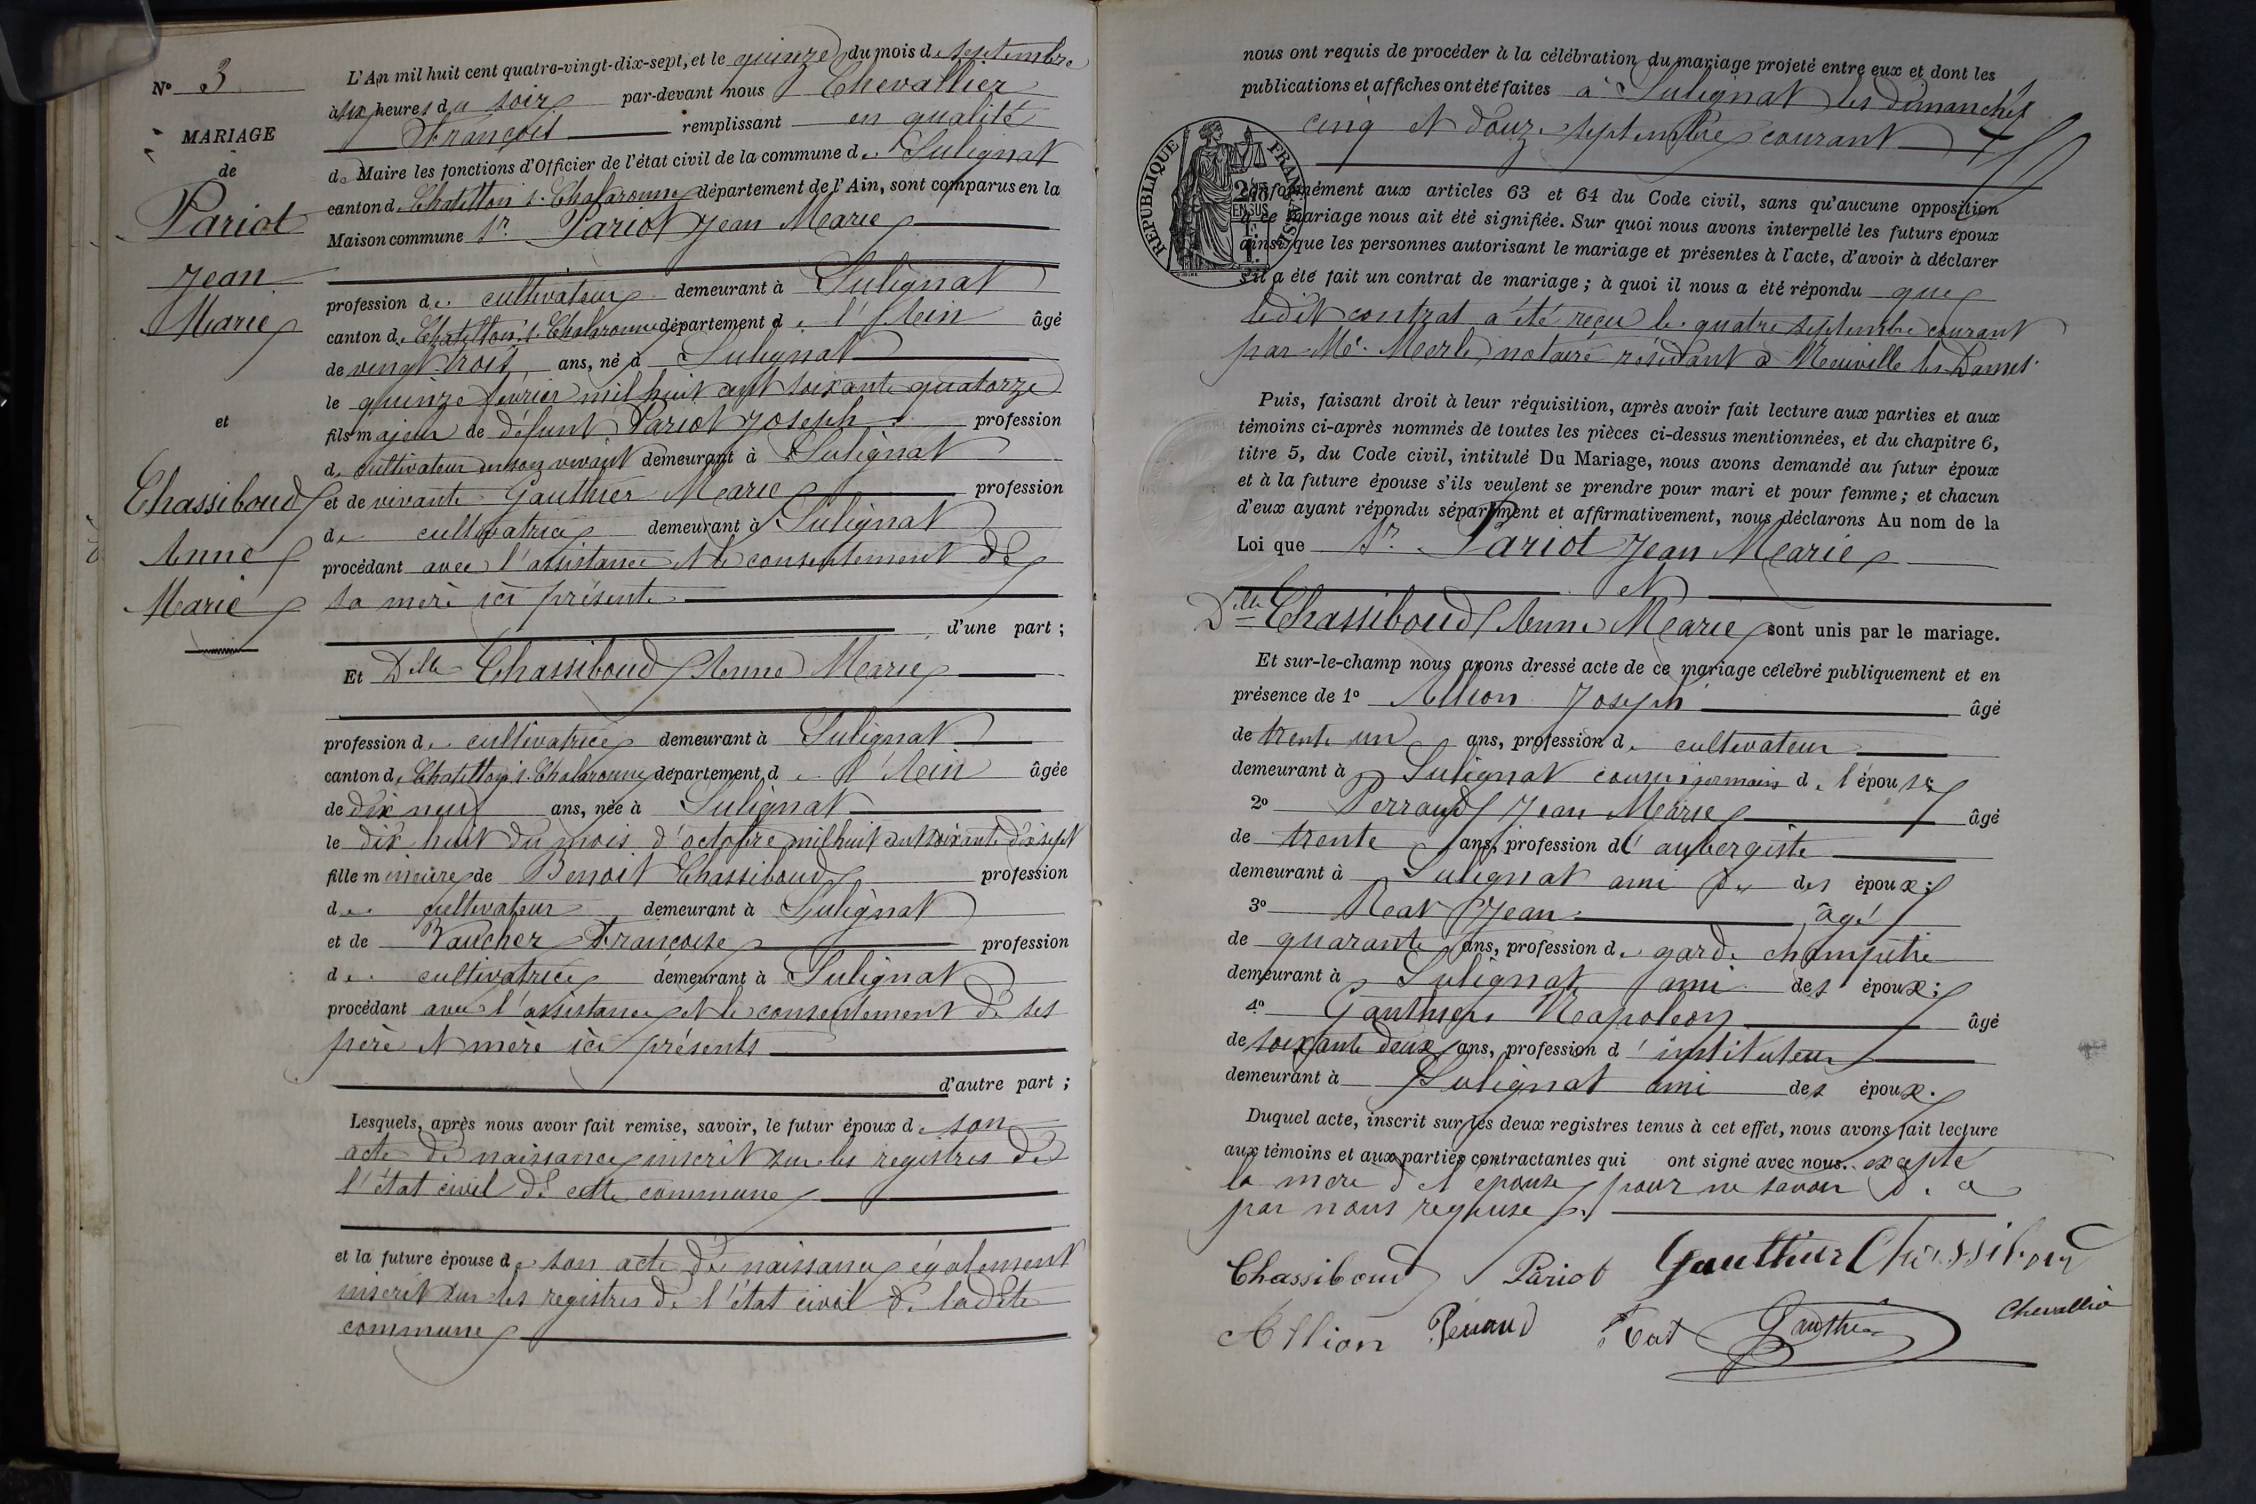 N° 3
MARIAGE
de
Pariot
Jean
Marie
et
Chassiboud
Anne
Marie
L'An mil huit cent quatre-vingt-dix-sept, et le quinze du mois de septembre
à six heures du soir par-devant nous Chevallier
François remplissant en qualité
de Maire les fonctions d'Officier de l'état civil de la commune de Sulignat
canton de Chatillon s. Chalaronne département de l'Ain, sont comparus en la
Maison commune Sr. Pariot Jean Marie
profession de cultivateur demeurant à Sulignat
canton de Chatillon s. Chalaronne département de l'Ain âgé
de vingt trois ans, né à Sulignat
le quinze fevrier mil huit cent soixante quatorze
fils majeur de défunt Pariot Joseph profession
de cultivateur en son vivant demeurant à Sulignat
et de vivante Gauthier Marie profession
de cultivatrice demeurant à Sulignat
procédant avec l'assistance et le consentement de
sa mère ici présente
d'une part ;
Et Dlle Chassiboud Anne Marie
profession de cultivatrice demeurant à Sulignat
canton de Chatillon s. Chalaronne département de l'Ain âgée
de dix neuf ans, née à Sulignat
le dix huit du mois d'octobre mil huit cent soixante dix sept
fille mineure de Benoit Chassiboud profession
de cultivateur demeurant à Sulignat
et de Vaucher Françoise profession
de cultivatrice demeurant à Sulignat
procédant avec l'assistance et le consentement de ses
père et mère ici présents
d'autre part ;
Lesquels, après nous avoir fait remise, savoir, le futur époux de son
acte de naissance inscrit sur les registres de
l'état civil de cette commune
et la future épouse de son acte de naissance également
inscrit sur les registres de l'état civil de ladite
commune
nous ont requis de procéder à la célébration du mariage projeté entre eux et dont les
publications et affiches ont été faites à Sulignat les dimanches
cinq et douze septembre courant
RÉPUBLIQUE FRANÇAISE
conformément aux articles 63 et 64 du Code civil, sans qu'aucune opposition
à ce mariage nous ait été signifiée. Sur quoi nous avons interpellé les futurs époux
ainsi que les personnes autorisant le mariage et présentes à l'acte, d'avoir à déclarer
s'il a été fait un contrat de mariage ; à quoi il nous a été répondu que
ledit contrat a été reçu le quatre septembre courant
par Me. Merle, notaire résidant à Neuville les Dames.
Puis, faisant droit à leur réquisition, après avoir fait lecture aux parties et aux
témoins ci-après nommés de toutes les pièces ci-dessus mentionnées, et du chapitre 6,
titre 5, du Code civil, intitulé Du Mariage, nous avons demandé au futur époux
et à la future épouse s'ils veulent se prendre pour mari et pour femme ; et chacun
d'eux ayant répondu séparément et affirmativement, nous déclarons Au nom de la
Loi que Sr. Pariot Jean Marie
et
Dlle Chassiboud Anne Marie sont unis par le mariage.
Et sur-le-champ nous avons dressé acte de ce mariage célébré publiquement et en
présence de 1° Allion Joseph âgé
de trente un ans, profession de cultivateur
demeurant à Sulignat cousin germain de l'épouse
2° Perraud Jean Marie âgé
de trente ans, profession d'aubergiste
demeurant à Sulignat ami des époux ;
3° Jean âgé
de quarante ans, profession de garde champêtre
demeurant à Sulignat ami des époux ;
4° Gauthier Napoléon âgé
de soixante deux ans, profession d'instituteur
demeurant à Sulignat ami des époux.
Duquel acte, inscrit sur les deux registres tenus à cet effet, nous avons fait lecture
aux témoins et aux parties contractantes qui ont signé avec nous. excepté
la mère de l'épouse pour ne savoir de ce
par nous requise
Chassiboud Pariot Gauthier Chassiboud
Allion Perraud Gauthier Chevallier